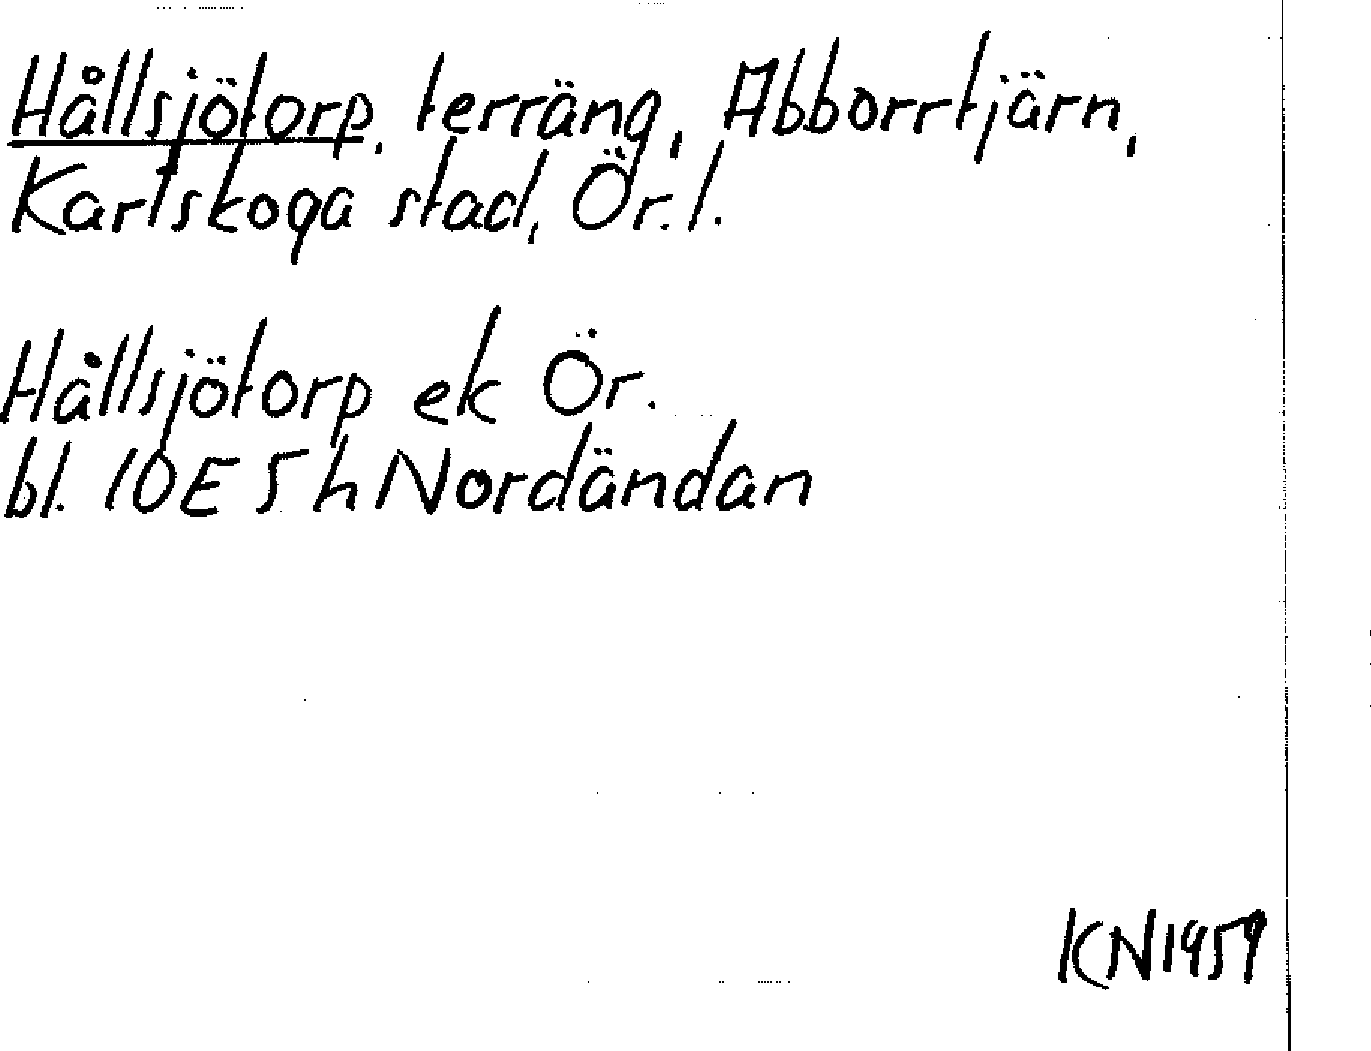 Hållsjötorp, terräng, Abborrtjärn,
Karlskoga stad, Ör. l.
Hållsjötorp ek Ör.
bl. 10E 5 h Nordändan
KN 1959